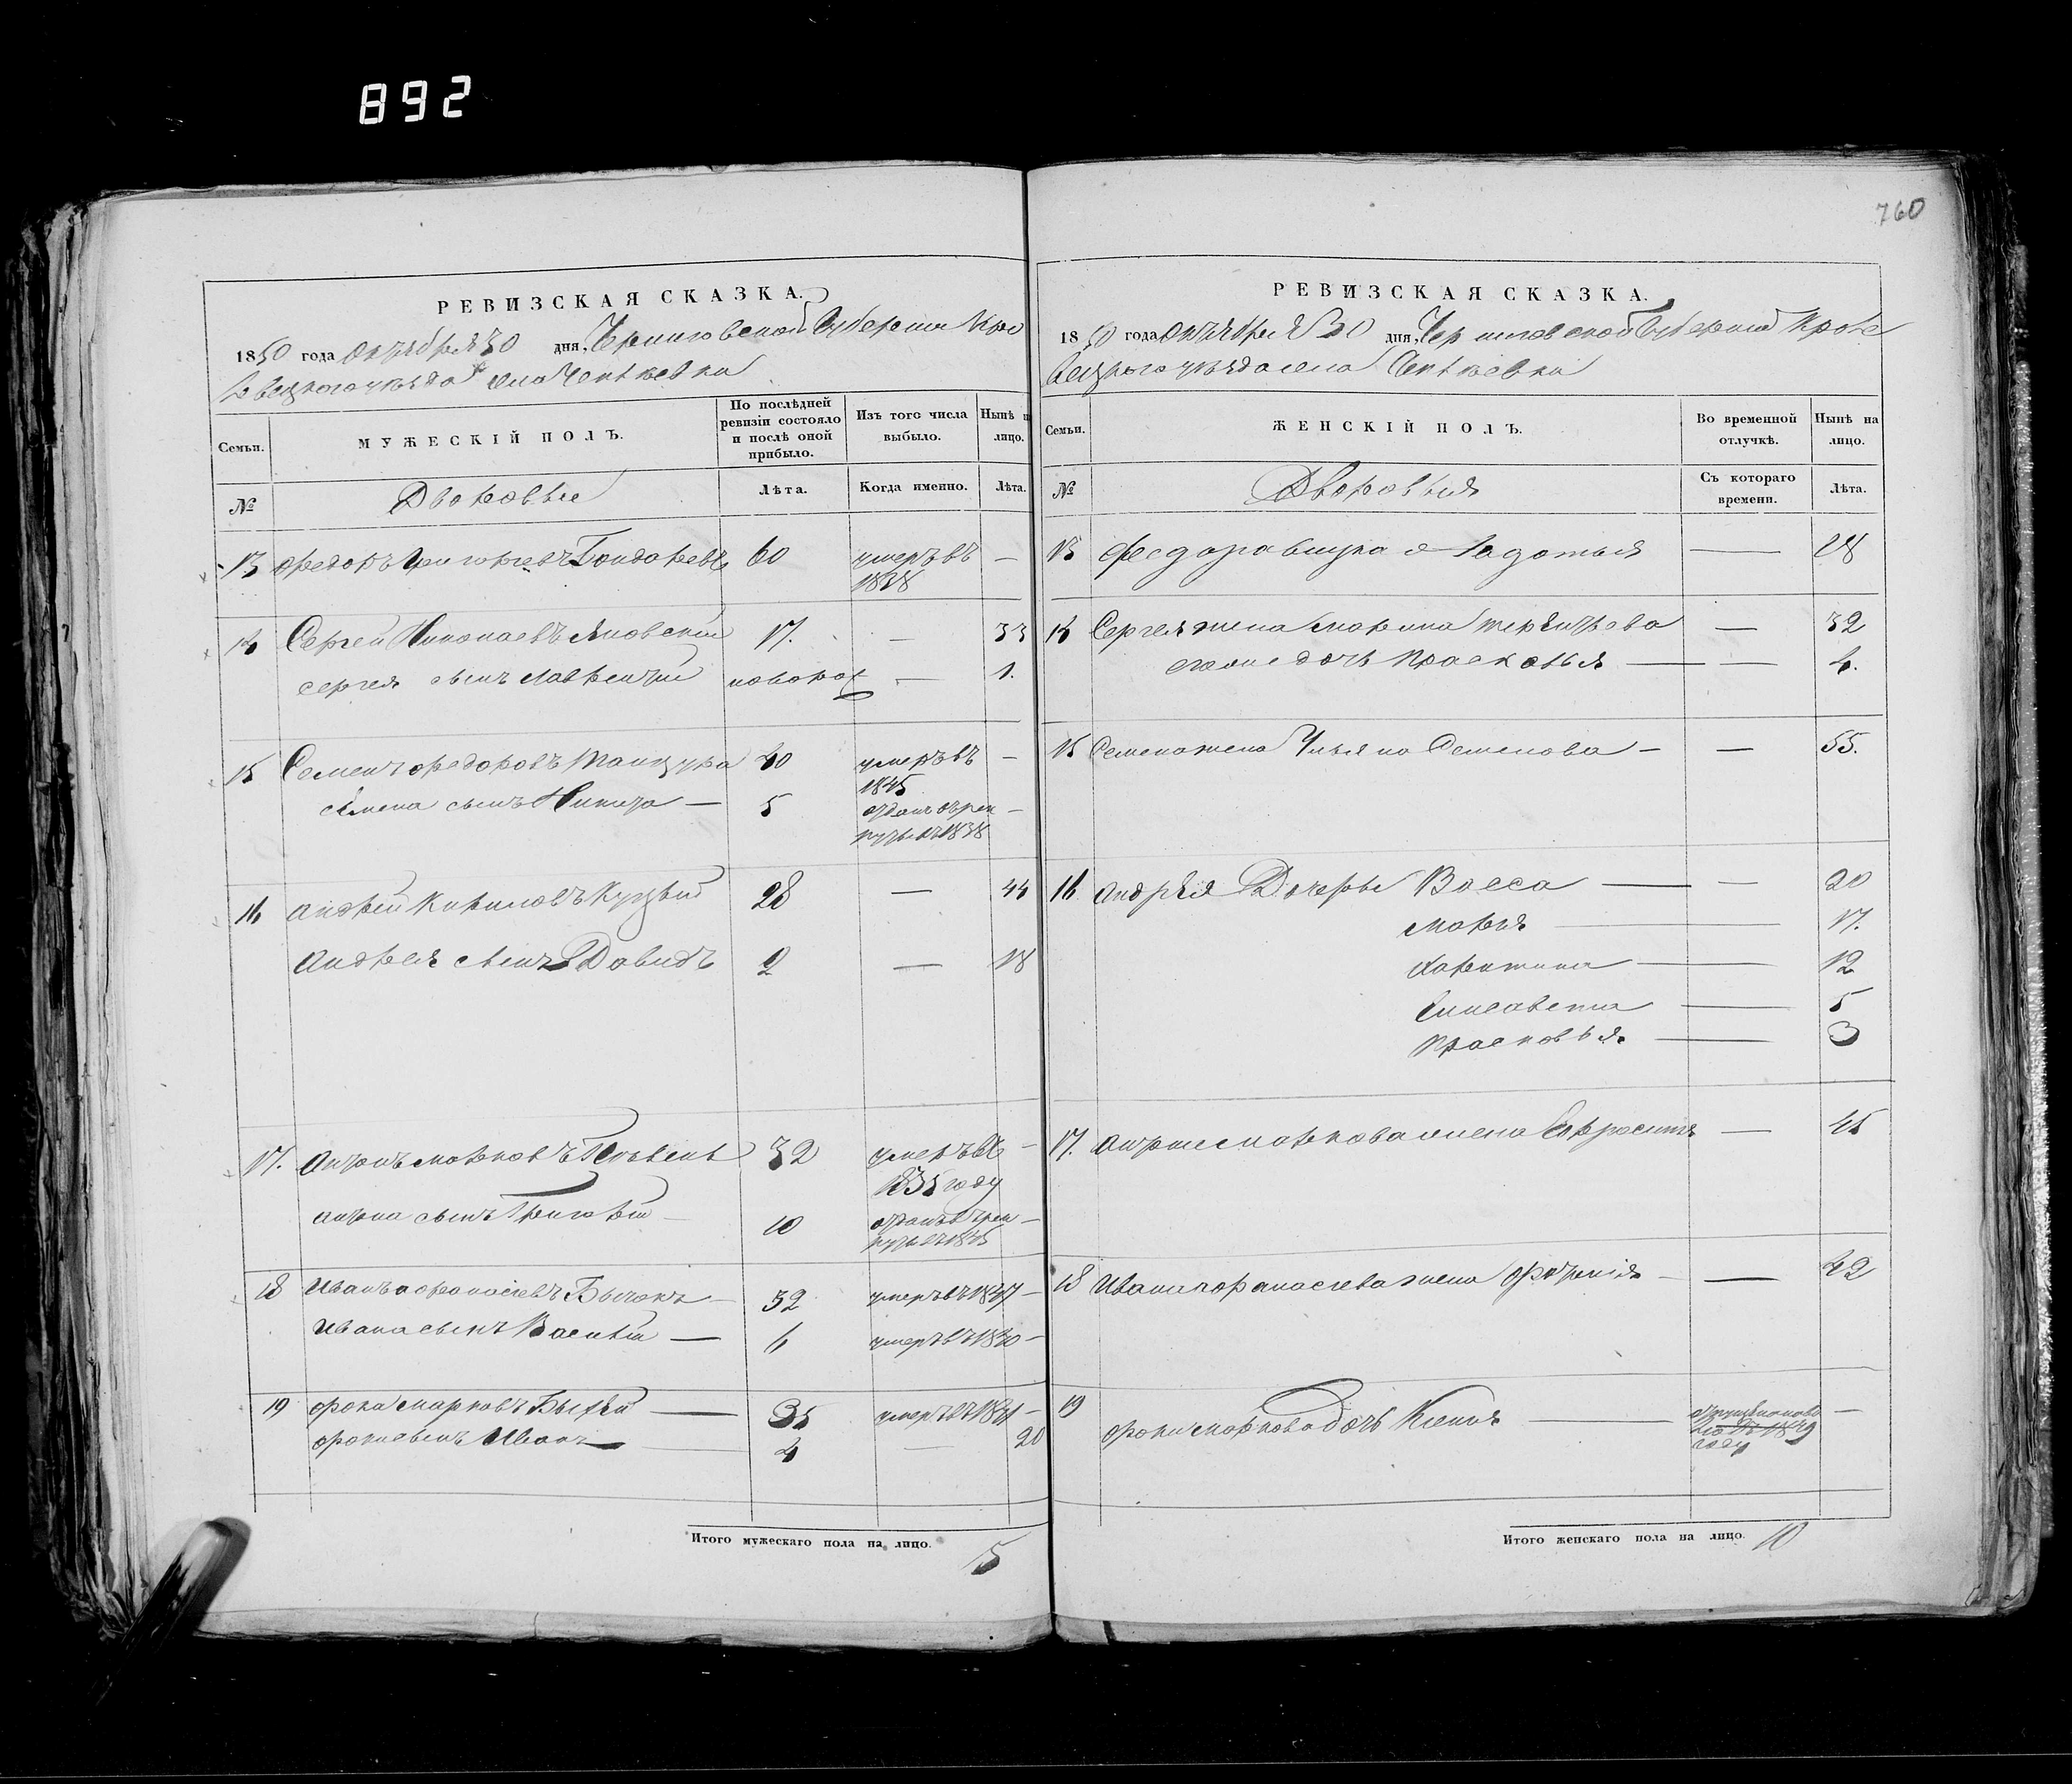 892
760
РЕВИЗСКАЯ СКАЗКА.
1850 года Октября 30 дня, Черниговской Губернии Кро
левецкого уѣзда села
Семьи.
МУЖЕСКІЙ ПОЛЪ.
По послѣдней ревизіи состояло и послѣ оной прибыло.
Изъ того числа выбыло.
Нынѣ на лицо.
№
Дворовые
Лѣта.
Когда именно.
Лѣта.
13 Федоръ Григорьевъ 60 умеръ въ —
1838
14 Сергей Николаевъ Яновский 17. — 33
Сергея сынъ Лаврентий новорож — 1.
15 Семенъ Федоровъ 40 умеръ въ —
1845
Семена сынъ Никита — 5 отданъ в рек —
руты въ 1838
16 Андрей Кириловъ Куцый 28 — 44
Андрея сынъ Давидъ 2 — 18
17. Антонъ Марковъ 32 умеръ въ —
1835 году
Антона сынъ Григорий — 10 отданъ в рек —
руты въ 1845
18 Иванъ Афанасіевъ Бычокъ 32 умеръ въ 1847 —
Ивана сынъ Василий — 6 умеръ въ 1840 —
19 Фока Марковъ — 35 умеръ въ 1841 —
Фоки сынъ Иванъ — 4 — 20
Итого мужескаго пола на лицо. 5
РЕВИЗСКАЯ СКАЗКА.
1850 года Октября 30 дня, Черниговской Губернии Кроле
вецкого уѣзда села
Семьи.
ЖЕНСКІЙ ПОЛЪ.
Во временной отлучкѣ.
Нынѣ на лицо.
№
Дворовыя
Съ котораго времени.
Лѣта.
13 Федора внука — 28
14 Сергея жена Марина Терентьева — 32
его же дочь Прасковья — — 4.
15 Семена жена Ульяна Семенова — — 55.
16 Андрея Дочеры Васса — — 20
Марья — 17.
Харитина — 12
Елисавета — 5
Прасковья — 3
17. Антона Маркова жена Ефросинья — 45
18 Ивана Афанасіева жена — — 42
19
Фоки Маркова дочь — —
1849
году
Итого женскаго пола на лицо. 10